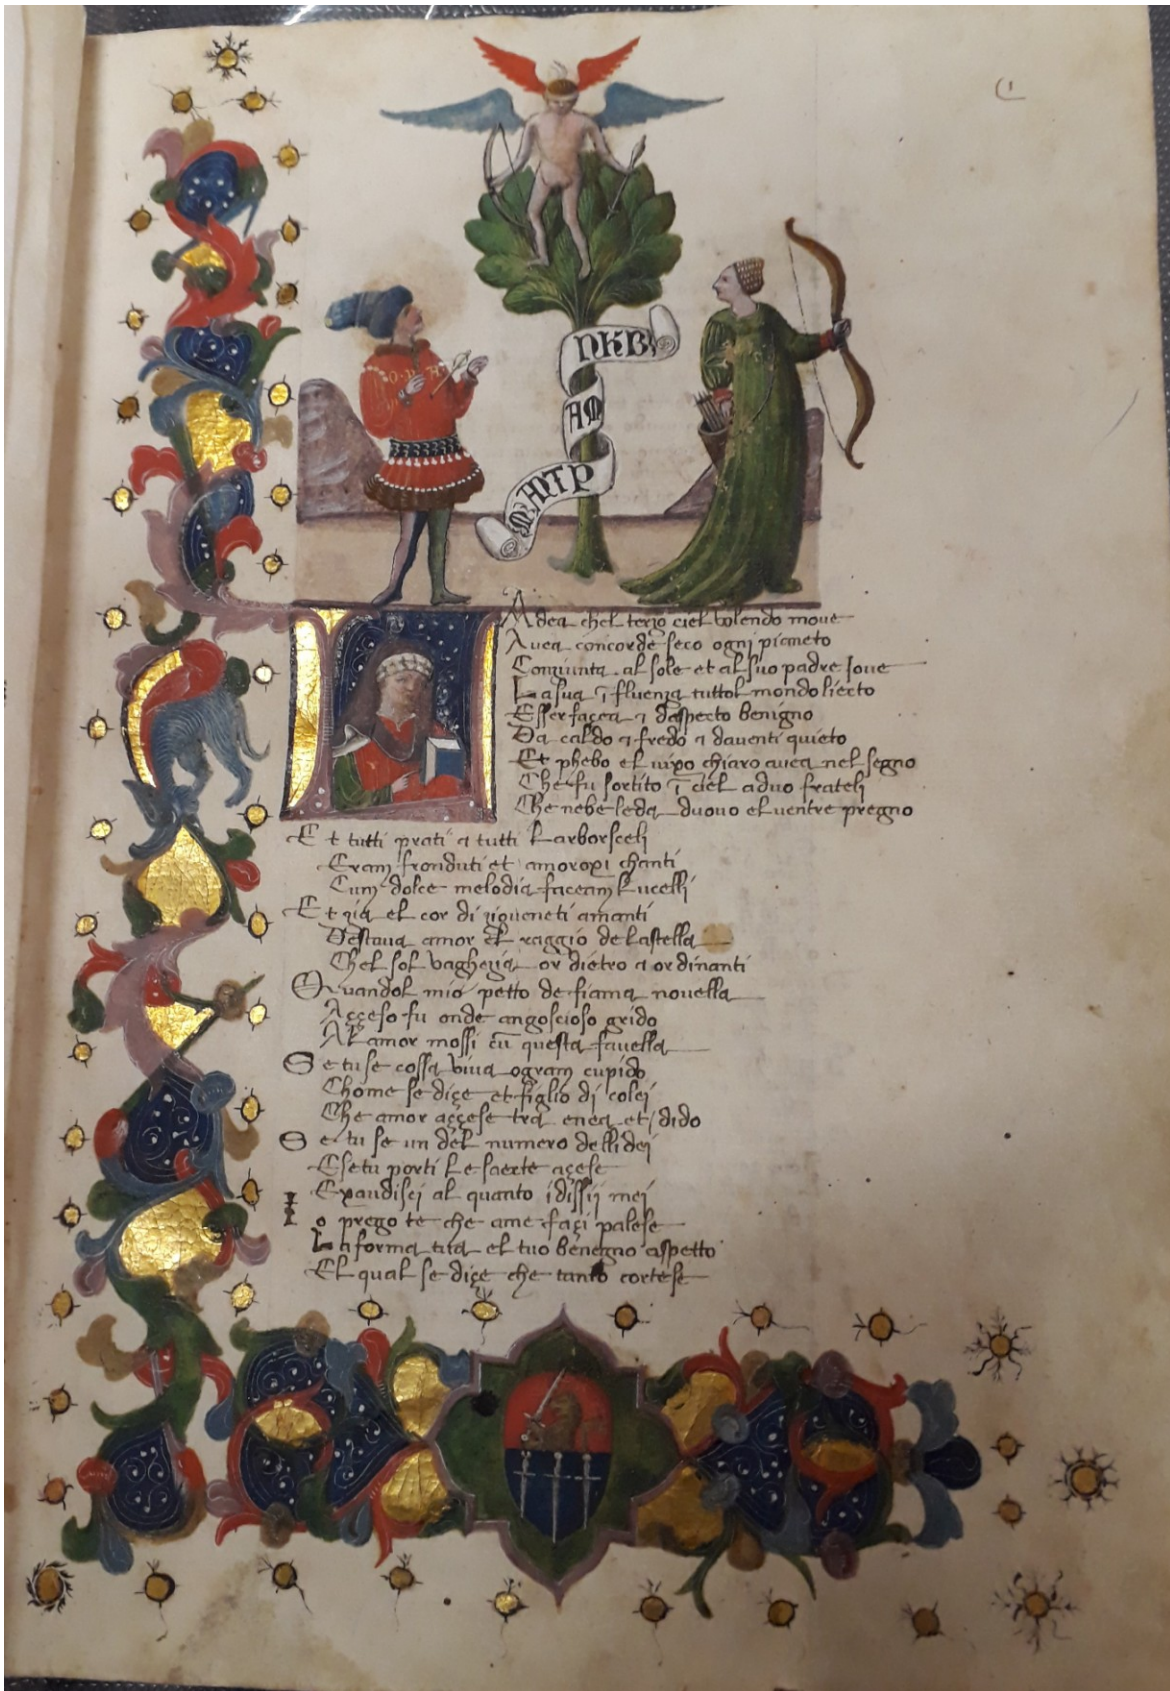 A dea chel terzo ciel volendo move
Avea concorde seco ogni pianeto
Coniunta al sole et al suo padre Iove
La sua ĩfluenza tuttol mondo lieto
Esser facea
benigno
Da caldo
fredo
daventi quieto
Et phebo el
chiaro avea nel segno
Che fu sortito ĩ ciel a duo frateli
Che nebe leda duovo el ventre pregno
Et tutti prati
tutti
Eram fronduti et
chanti
Cum dolce melodia faceam
ucelli
Et gia el cor di
amanti
Destava amor el raggio de la stella
Chel sol
or dietro
or dinanti
Quandol mio petto de fiama novella
Açceso fu onde angoscioso grido
Al amor mossi cũ questa favella
Se tu se cossa viva o gram cupido
Chome se diçe et figlio di colei
Che amor açcese tra enea et dido
Se tu se un del numero delli dei
E se tu porti le saette açese
Exaudisci al quanto i
mei
Io prego te che a me façi palese
La forma tua el tuo benegno aspetto
El qual se diçe che tanto cortese